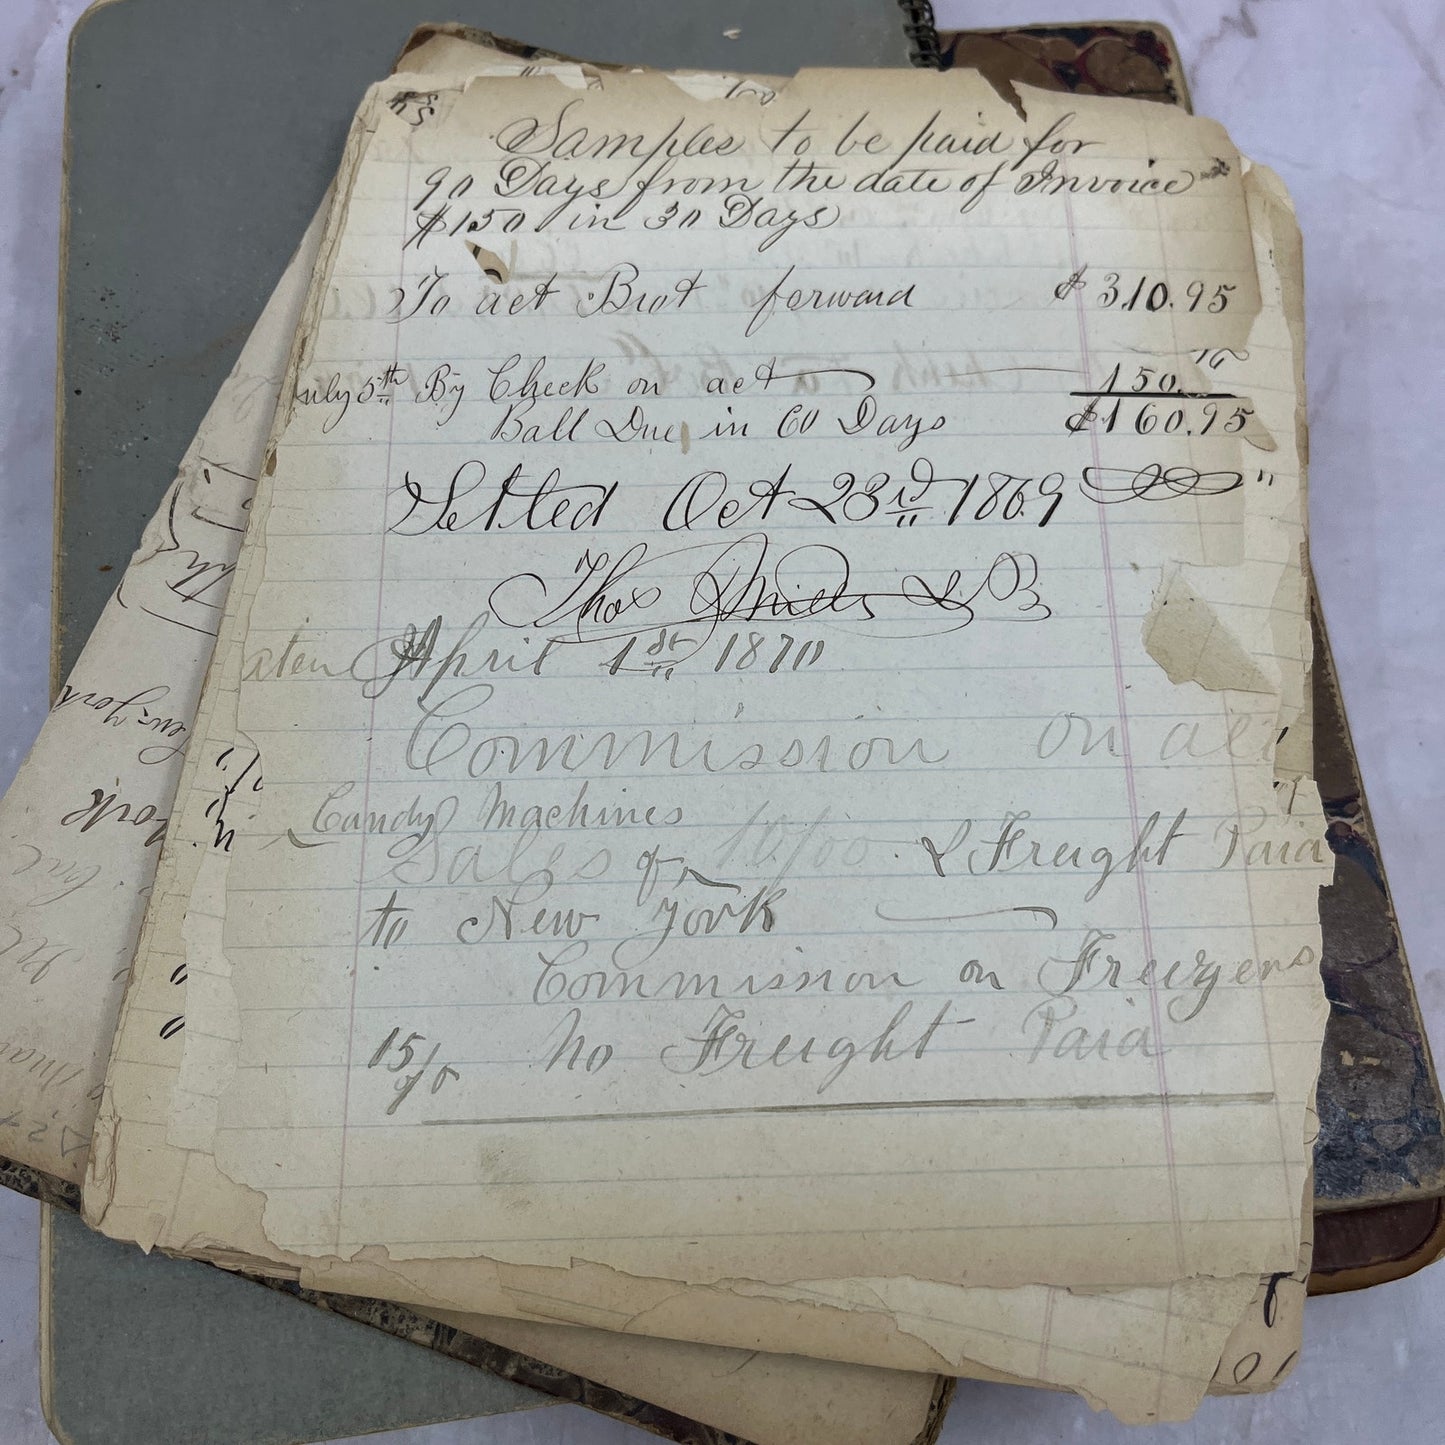 Samples to be paid for
90 Days from the date of Invoice
$150 in 30 Days
To act Brot forward $310.95
uly 5th By Check on act 150.
Ball Due in 60 Days $160.95
Settled Oct 23rd 1869
Thos & B
April 1st 1870
Commission on all
Candy Machines
Sales of 10/00 & Freight Paid
to New York
Commission on Freezers
15 % No Freight Paid